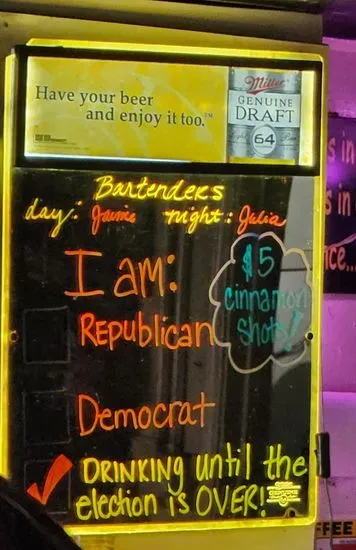 Have your beer
and enjoy it too.™
Miller
GENUINE
DRAFT
Light 64
Bartenders
day: Jamie night: Julia
I am:
$5
cinnamon
shots!
REpublican
Democrat
DRINKING until the
election is OVER!
s in
s in
ce...
FFEE